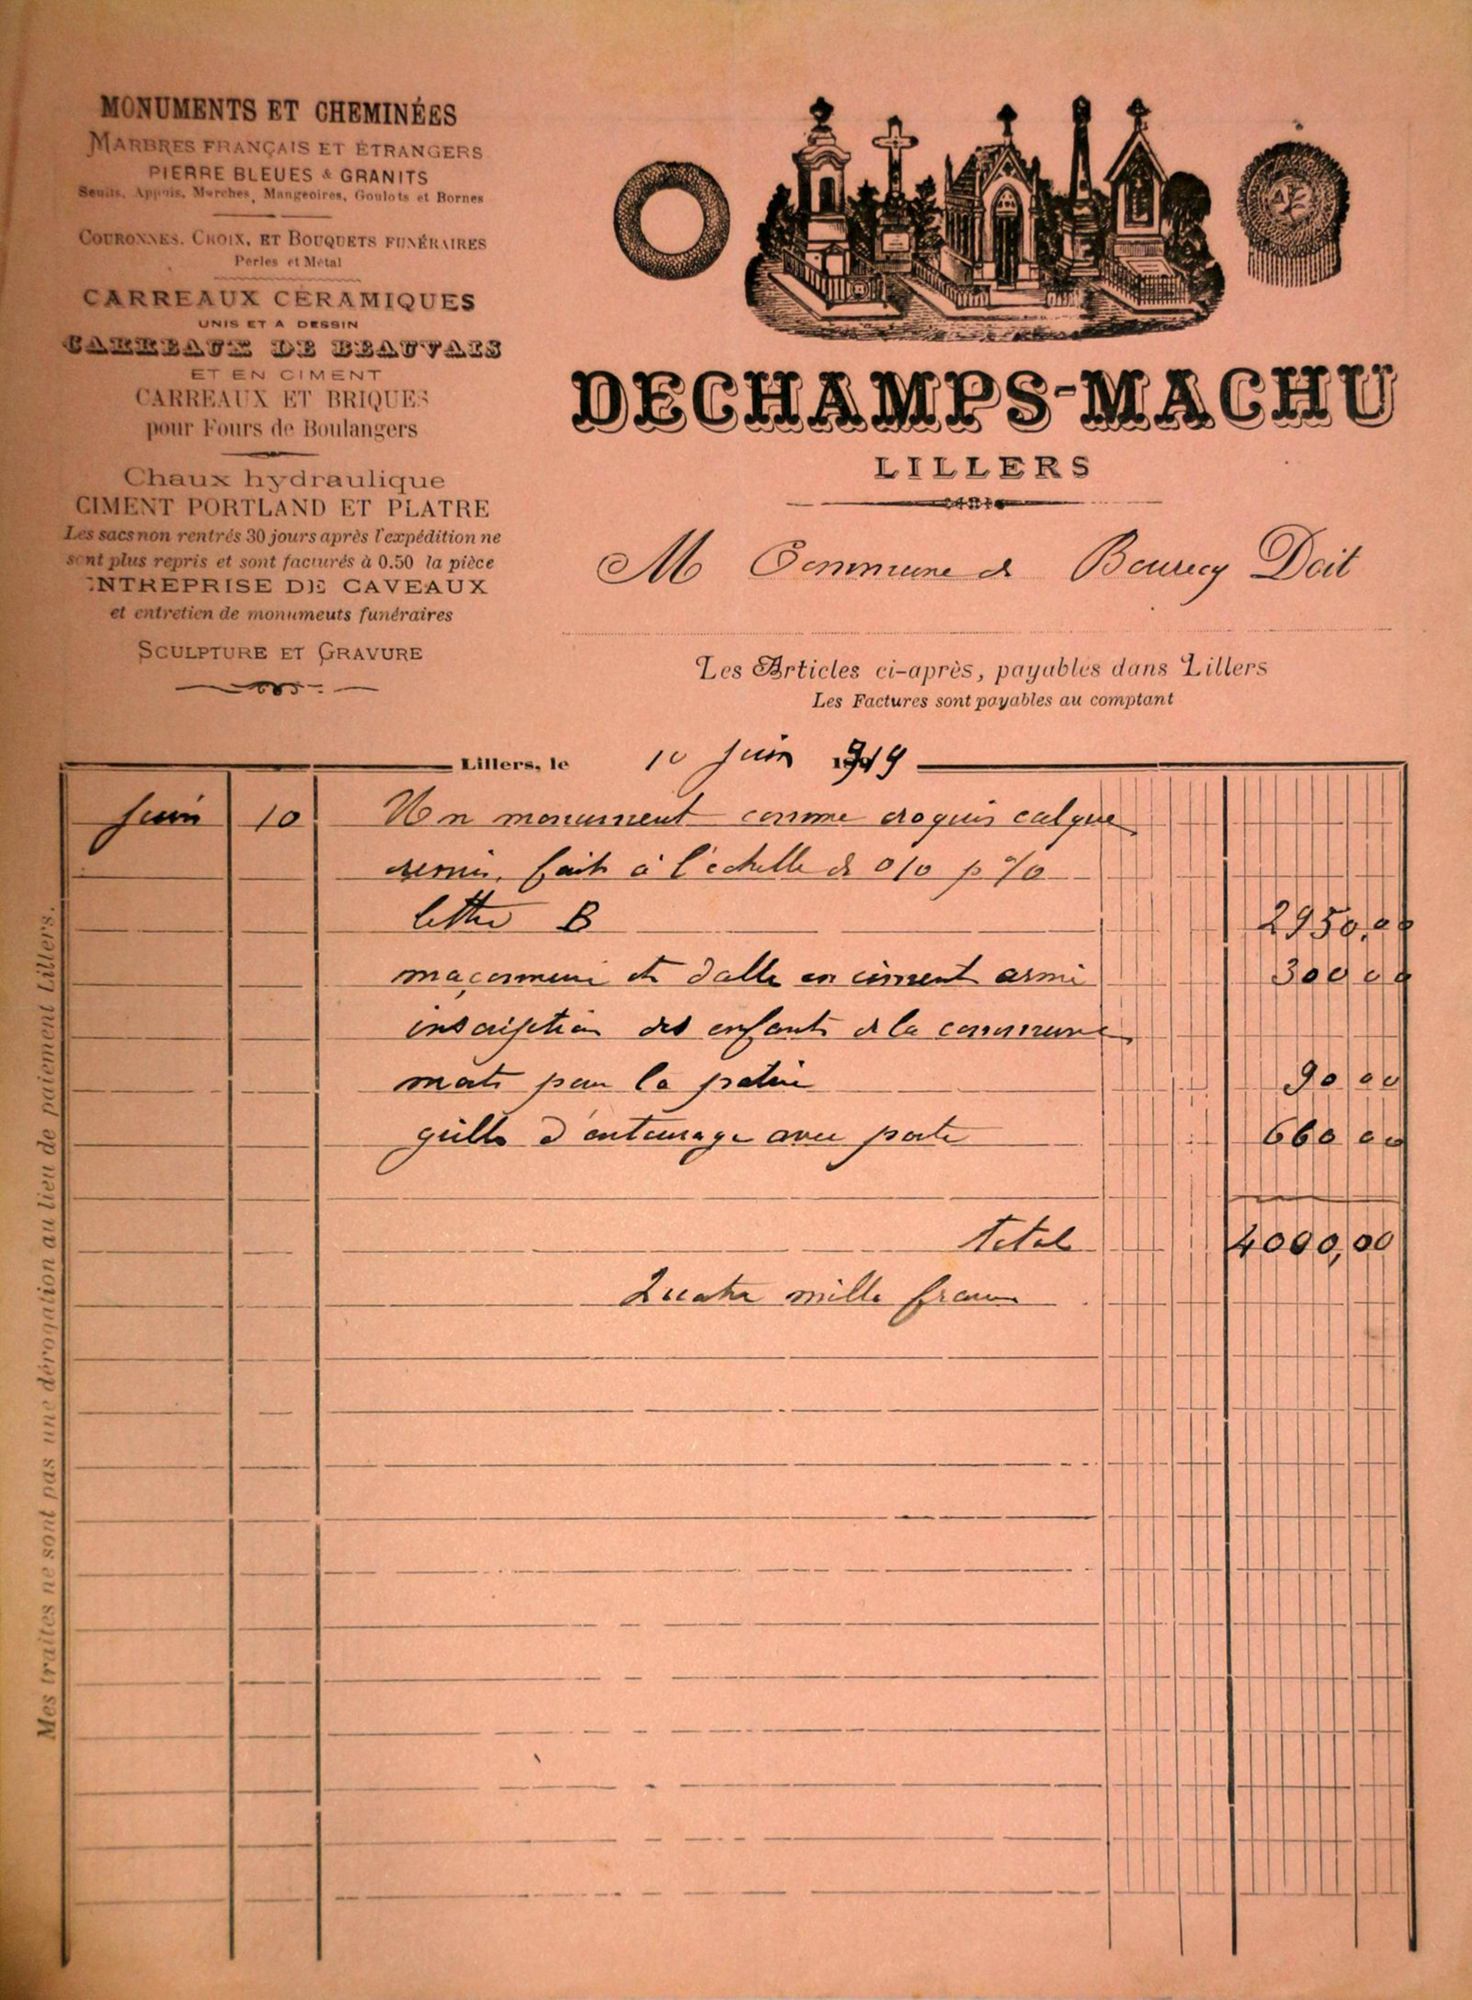 MONUMENTS ET CHEMINÉES
MARBRES FRANÇAIS ET ÉTRANGERS
PIERRE BLEUES & GRANITS
Seuils, Appuis, Marches, Mangeoires, Goulots et Bornes
COURONNES, CROIX, ET BOUQUETS FUNÉRAIRES
Perles et Métal
CARREAUX CERAMIQUES
UNIS ET A DESSIN
CARREAUX DE BEAUVAIS
ET EN CIMENT
CARREAUX ET BRIQUES
pour Fours de Boulangers
Chaux hydraulique
CIMENT PORTLAND ET PLATRE
Les sacs non rentrés 30 jours après l'expédition ne
sont plus repris et sont facturés à 0.50 la pièce
ENTREPRISE DE CAVEAUX
et entretien de monuments funéraires
SCULPTURE ET GRAVURE
DECHAMPS-MACHU
LILLERS
M Commune de Bourecq Doit
Les Articles ci-après, payables dans Lillers
Les Factures sont payables au comptant
Lillers, le 10 juin 1919
Juin 10 Un monument comme croquis calque
remis, fait à l'échelle de 0/0 p %
lettre B 2950,00
maçonnerie et dalle en ciment armé 300 00
inscription des enfants de la commune
morts pour la patrie 90 00
grille d'entourage avec porte 660 00
total 4000,00
Quatre mille francs
Mes traites ne sont pas une dérogation au lieu de paiement Lillers.